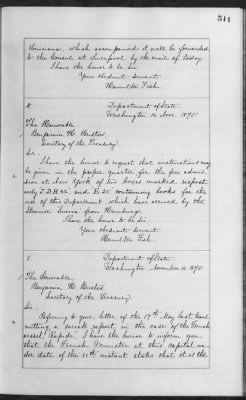 541
Louisiana, which accompanied it will be forwarded
to the Consul at Liverpool by the mail of today.
I have the honor to be Sir
Your obedient servant
Hamilton Fish.
Department of State
Washington 16 Nov. 1875
The Honorable
Benjamin H. Bristow
Secretary of the Treasury
Sir
I have the honor to request that instructions may
be given in the proper quarter for the free admis-
sion at New York of two boxes marked respect-
ively containing books for the
use of this Department, which have arrived by the
Steamer from Hamburg.
I have the honor to be Sir
Your obedient servant
Hamilton Fish.
Department of State
Washington November 16 1875
The Honorable
Benjamin H. Bristow,
Secretary of the Treasury.
Sir
Referring to your letter of the 19th May last trans-
mitting a report, in the case of the French
vessel "Rapide" I have the honor to inform you,
that the French Minister at this capital un-
der date of the 11th instant states that it is the